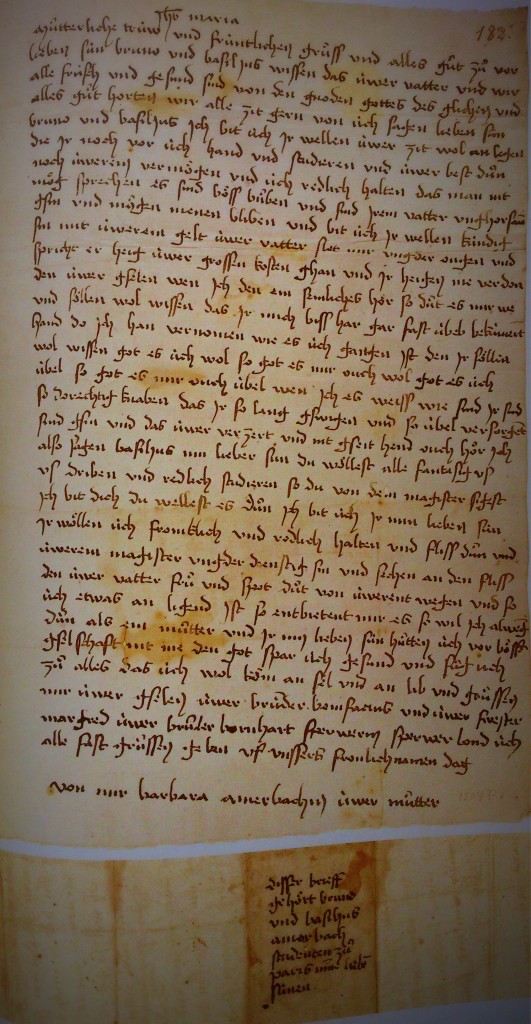 Jhs maria
182.
mütterliche trüw und früntlichen grüss und alles güt zů vor
lieben sün bruno und basilius wissen das üwer vatter und wir
alle früsch und gesund sind von den gnoden gottes des glichen und
alles güt horten wir alle zit gern von üch sagen lieben sün
bruno und basilius ich bit üch ir wellen üwer zit wol an legen
die ir noch vor üch hand und studieren und üwer best dün
noch üwerem vermögen und üch redlich halten das man nit
mög sprechen es sind böss buben und sind irem vatter unghorsam
gsin und mögen nienen bliben und bit üch ir wellen kündig
sin mit üwerem gelt üwer vatter lit mir ongen und
spricht er heig üwer grossen kosten ghan und ir heigen nie
den üwer gselen wen ich den ein semliches hör so düt es mir we
und söllen wol wissen das ir mich biss har gar fast übel bekümert
hand do ich han vernomen wie es üch gangen ist den ir söllen
wol wissen got es üch wol so got es mir ouch wol got es üch
übel so got es mir ouch übel wen ich es weiss wie sind ir
so dorechtig knaben das ir so lang gswigen und so übel versorget
sind gsin und das üwer verzert und nit gseit hend ouch hör ich
also sagen basilius min lieber sun du wöllest alle fantasig us
us driben und redlich studieren so du von dem magister
ich bit dich du wellest es dün ich bit üch ir min lieben sün
ir wöllen üch fromklich und redlich halten und fliss dün und
üwerem magister dienstig sin und sechen an den fliss
den üwer vatter frü und spot düt von üwerent wegen und so
üch etwas an ligend ist so entbietent mir es so wil ich alweg
dün als ein mütter und ir min lieben sün hütten üch vor böser
gselschaft nit me den got spar üch gesund und füg üch
zů alles das üch wol kom an sel und an lib und grüssen
mir üwer gselen üwer brůder bonifacius und üwer swester
margred üwer brůder bernhart sperwer lond üch
alle fast grüssen geben uf unssers fronlichnamen dag
von mir barbara amerbachin üwer mütter
disser brieff
gehört bruno
und basilius
amerbach
studenten zů
paris mine lieben
sünen